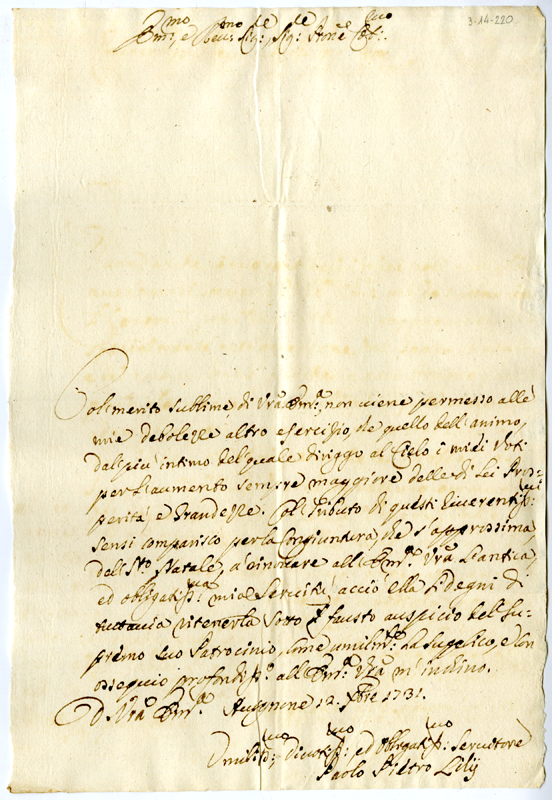 3-14-220
Emmo, e Revmo Sigre, Sigre Prone Colmo
Col merito sublime di Vrã Emã, non viene permesso allé
mie debolezze altro esercizio, che quello dell'animo,
dal più intimo del quale diriggo al Cielo i miei Voti
per l'aumento sempre maggiore delle di Lei Pros-
perità e Grandezze. Col tributo di questi Riverentissmi
sensi comparisco per la congiuntura, che s'approssima
del Sto Natale, a rinovare all'Emã Vrã l'antica,
ed obligatissma mia Servitù, acciò ella si degni di
tuttavia ritenerla sotto il fausto auspicio del su-
premo suo Patrocinio, come umilmte La suplico, e con
ossequio profondisso all'Emã Vrã m'inchino.
D. Vrã Emã Avignone 12 Xbre 1731.
Umilissmo, Divotissmo, ed Obligatissmo Servitore
Paolo Pietro Lilij